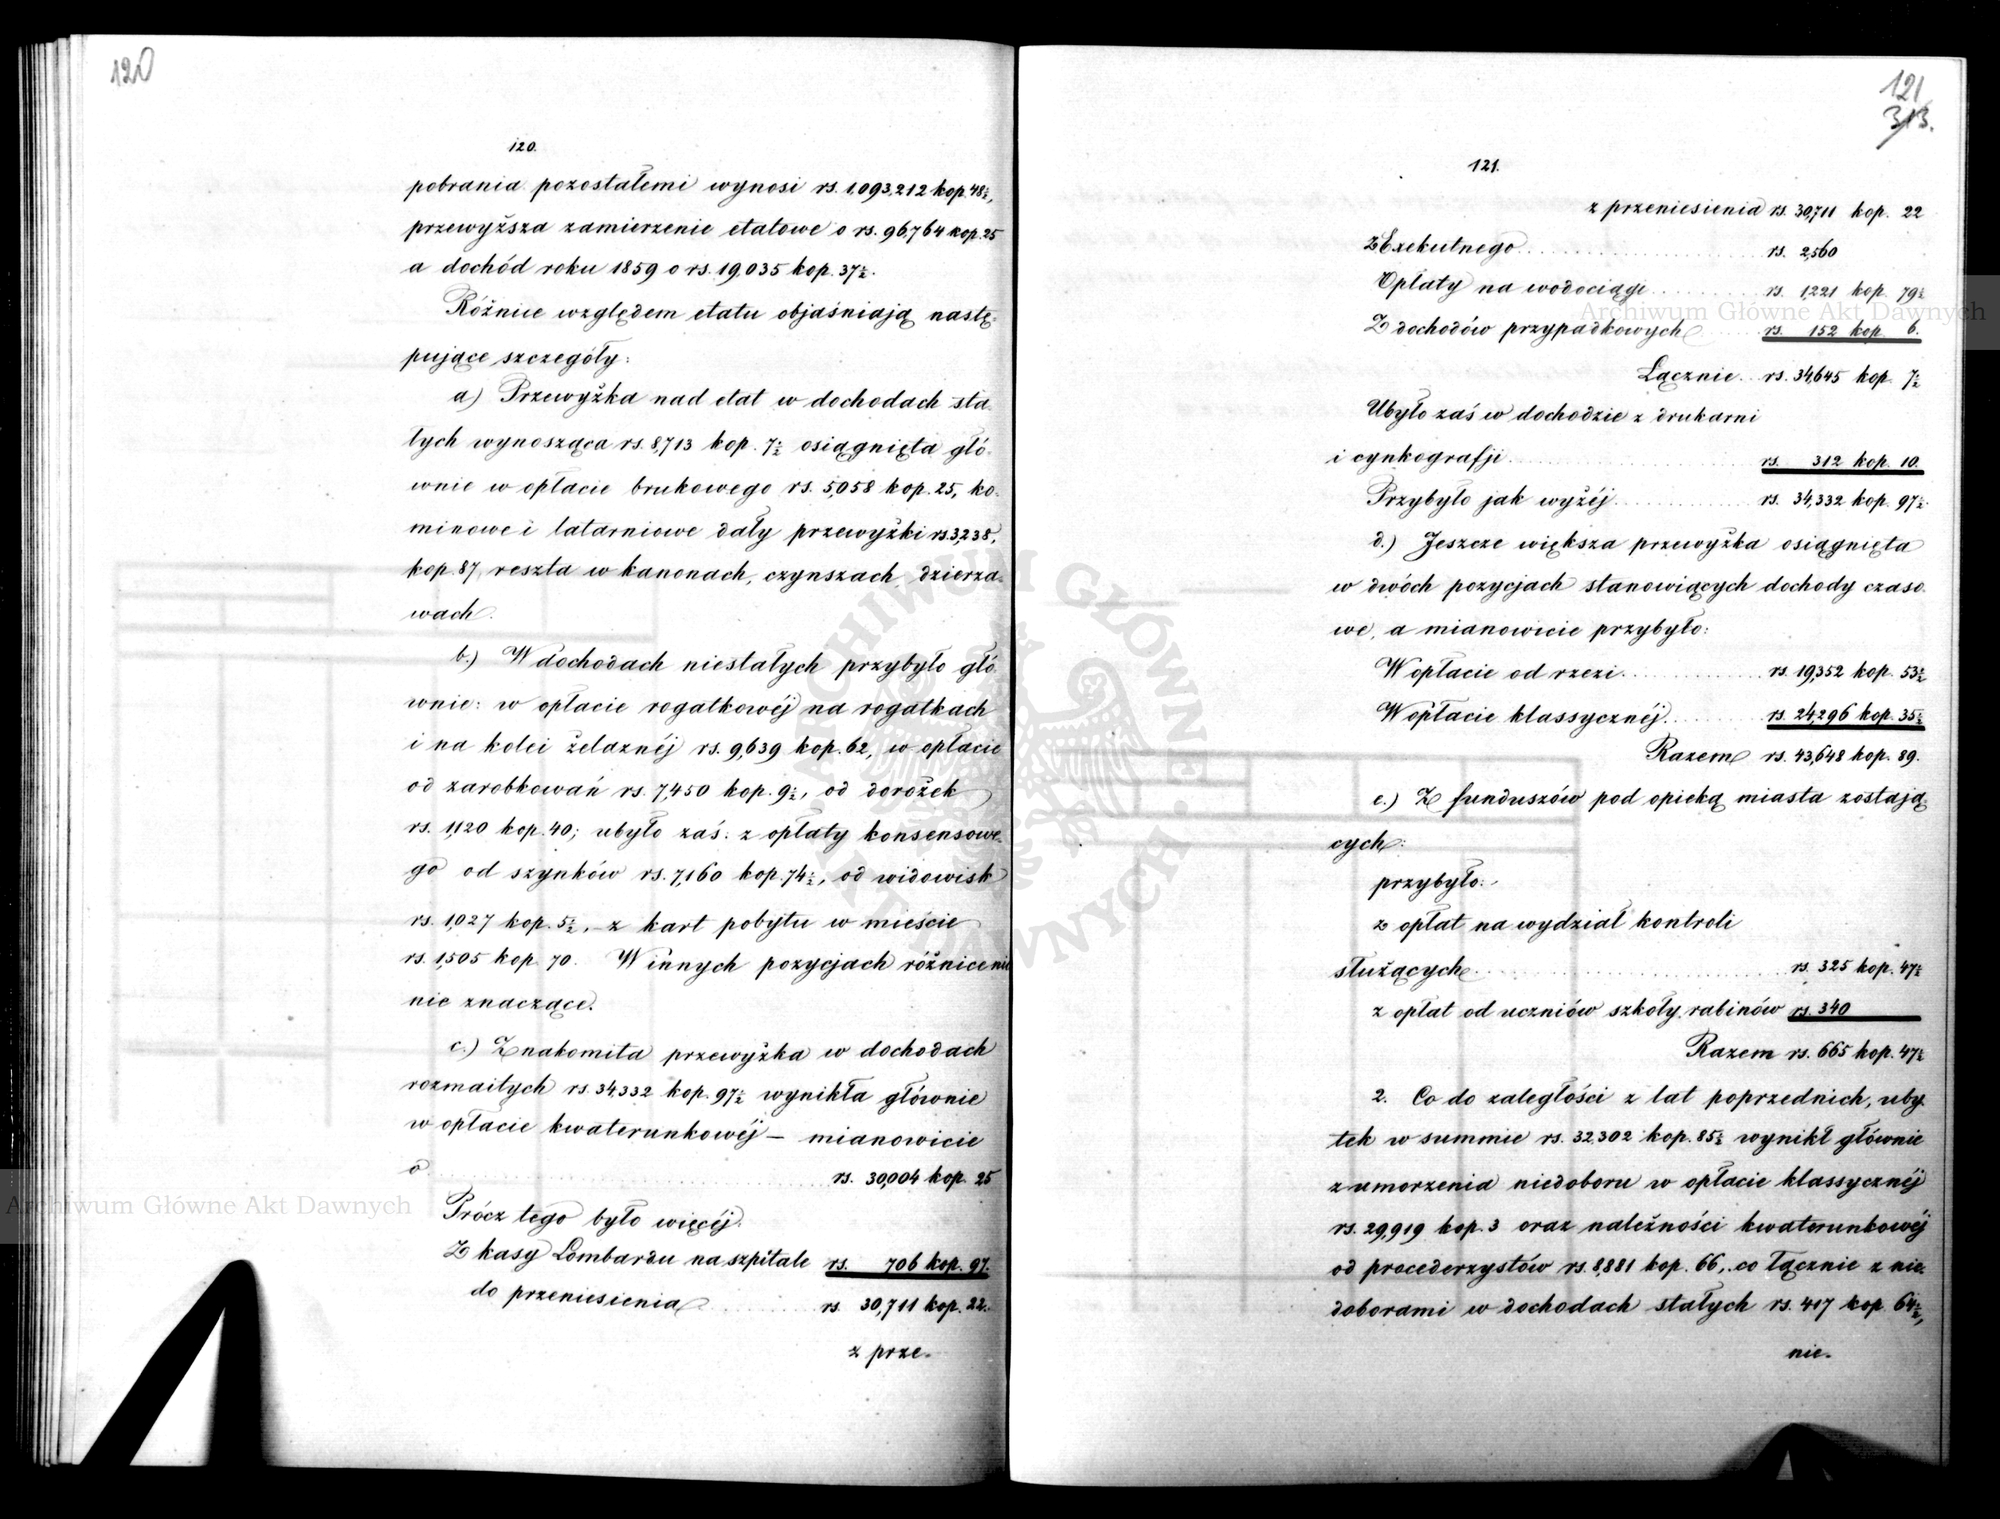 120
120.
pobrania pozostałemi wynosi rs. 1,093,212 kop. 48½,
przewyższa zamierzenie etatowe o rs. 96,764 kop. 25
a dochód roku 1859 o rs. 19,035 kop. 37½.
Różnice względem etatu objaśniają nastę-
pujące szczegóły:
a) Przewyżka nad etat w dochodach sta-
łych wynosząca rs. 8,713 kop. 7½ osiągnięta głó-
wnie w opłacie brukowego rs. 5,058 kop. 25, ko-
minowe i latarniowe dały przewyżki rs. 3,238,
kop. 87, reszta w kanonach, czynszach, dzierża-
wach.
b.) W dochodach niestałych przybyło głó-
wnie: w opłacie rogatkowéj na rogatkach
i na kolei żelaznéj rs. 9,639 kop. 62, w opłacie
od zarobkowań rs. 7,450 kop. 9½, od dorożek
rs. 1,120 kop. 40; ubyło zaś: z opłaty konsensowe-
go od szynków rs. 7,160 kop. 74½, od widowisk
rs. 1,027 kop. 5½, z kart pobytu w mieście
rs. 1,505 kop. 70. W innych pozycjach różnice nie
nie znaczące.
c.) Znakomita przewyżka w dochodach
rozmaitych rs. 34,332 kop. 97½ wynikła głównie
w opłacie kwaterunkowéj – mianowicie
o rs. 30,004 kop. 25
Prócz tego było więcéj:
Z kasy Lombardu na szpitale rs. 706 kop. 97.
do przeniesienia rs. 30,711 kop. 22.
z prze-
121
313.
121.
z przeniesienia rs. 30,711 kop. 22
Z Exekutnego rs. 2,560
Opłaty na wodociągi rs. 1,221 kop. 79½
Z dochodów przypadkowych rs. 152 kop. 6.
Łącznie rs. 34,645 kop. 7½
Ubyło zaś w dochodzie z drukarni
i cynkografji rs. 312 kop. 10.
Przybyło jak wyżéj rs. 34,332 kop. 97½.
d.) Jeszcze większa przewyżka osiągnięta
w dwóch pozycjach stanowiących dochody czaso-
we, a mianowicie przybyło:
W opłacie od rzezi rs. 19,352 kop. 53½
W opłacie klassycznéj rs. 24,296 kop. 35½
Razem rs. 43,648 kop. 89.
e.) Z funduszów pod opieką miasta zostają-
cych:
przybyło:
z opłat na wydział kontroli
służących rs. 325 kop. 47½
z opłat od uczniów szkoły rabinów rs. 340
Razem rs. 665 kop. 47½
2. Co do zaległości z lat poprzednich, uby-
tek w summie rs. 32,302 kop. 85½ wynikł głównie
z umorzenia niedoboru w opłacie klassycznéj
rs. 29,919 kop. 3 oraz należności kwaterunkowéj
od procederzystów rs. 8,881 kop. 66, co łącznie z nie-
doborami w dochodach stałych rs. 417 kop. 64½,
nie-
Archiwum Główne Akt Dawnych
Archiwum Główne Akt Dawnych
ARCHIWUM GŁÓWNE AKT DAWNYCH